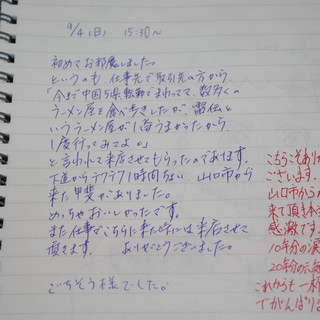 9/4(日) 15:30～
初めてお邪魔しました。
というのも 仕事先で取引先の方から、
「今まで中国5県転勤でまわってて、数多くの
ラーメン屋を食べ歩きしたが、雷伝と
いうラーメン屋が1番うまかったから
1度行ってみてよ。」
と言われて来店させてもらったのであります。
下道から 1時間ちょい 山口市から
来た甲斐がありました。
めっちゃおいしかったです。
また仕事でこちらに来た時には来店させて
頂きます。 ありがとうございました。
ごちそう様でした。
こちらこそあり
ございます。
山口市から
来て頂き本
感激です。
10年分の
20年分の元気
これからも一杯
でがんばりま